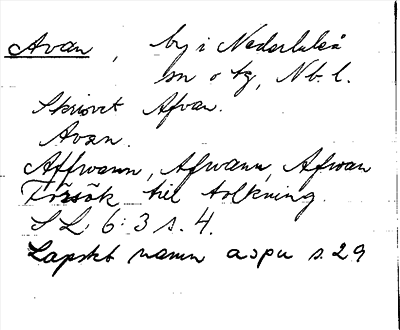 Avan, by i Nederluleå
sn o tg, Nb. l.
Skrivet Afvan.
Avan.
Affwann, Afwann, Afwan
Försök till tolkning.
SL 6:3 s. 4.
Lapskt namn aspu s. 29